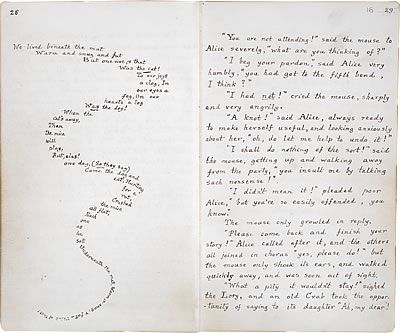 28
We lived beneath the mat
Warm and snug and fat
But one woe, & that
Was the cat!
To our joys
a clog, In
our eyes a
fog, On our
hearts a log
Was the dog!
When the
cat's away,
Then
the mice
will
play,
But, alas!
one day, (So they say)
Came the dog and
cat, Hunting
for a
rat,
Crushed
the mice
all flat,
Each
one
as
he
sat
Underneath the mat, Warm, & snug, & fat. Think of that!
16 29.
"You are not attending!" said the mouse to
Alice severely, "what are you thinking of?"
"I beg your pardon," said Alice very
humbly, "you had got to the fifth bend,
I think?"
"I had not!" cried the mouse, sharply
and very angrily.
"A knot!" said Alice, always ready
to make herself useful, and looking anxiously
about her, "oh, do let me help to undo it!"
"I shall do nothing of the sort!" said
the mouse, getting up and walking away
from the party, "you insult me by talking
such nonsense!"
"I didn't mean it!" pleaded poor
Alice, "but you're so easily offended, you
know."
The mouse only growled in reply.
"Please come back and finish your
story!" Alice called after it, and the others
all joined in chorus "yes, please do!" but
the mouse only shook its ears, and walked
quickly away, and was soon out of sight.
"What a pity it wouldn't stay!" sighed
the Lory, and an old Crab took the oppor-
tunity of saying to its daughter "Ah, my dear!